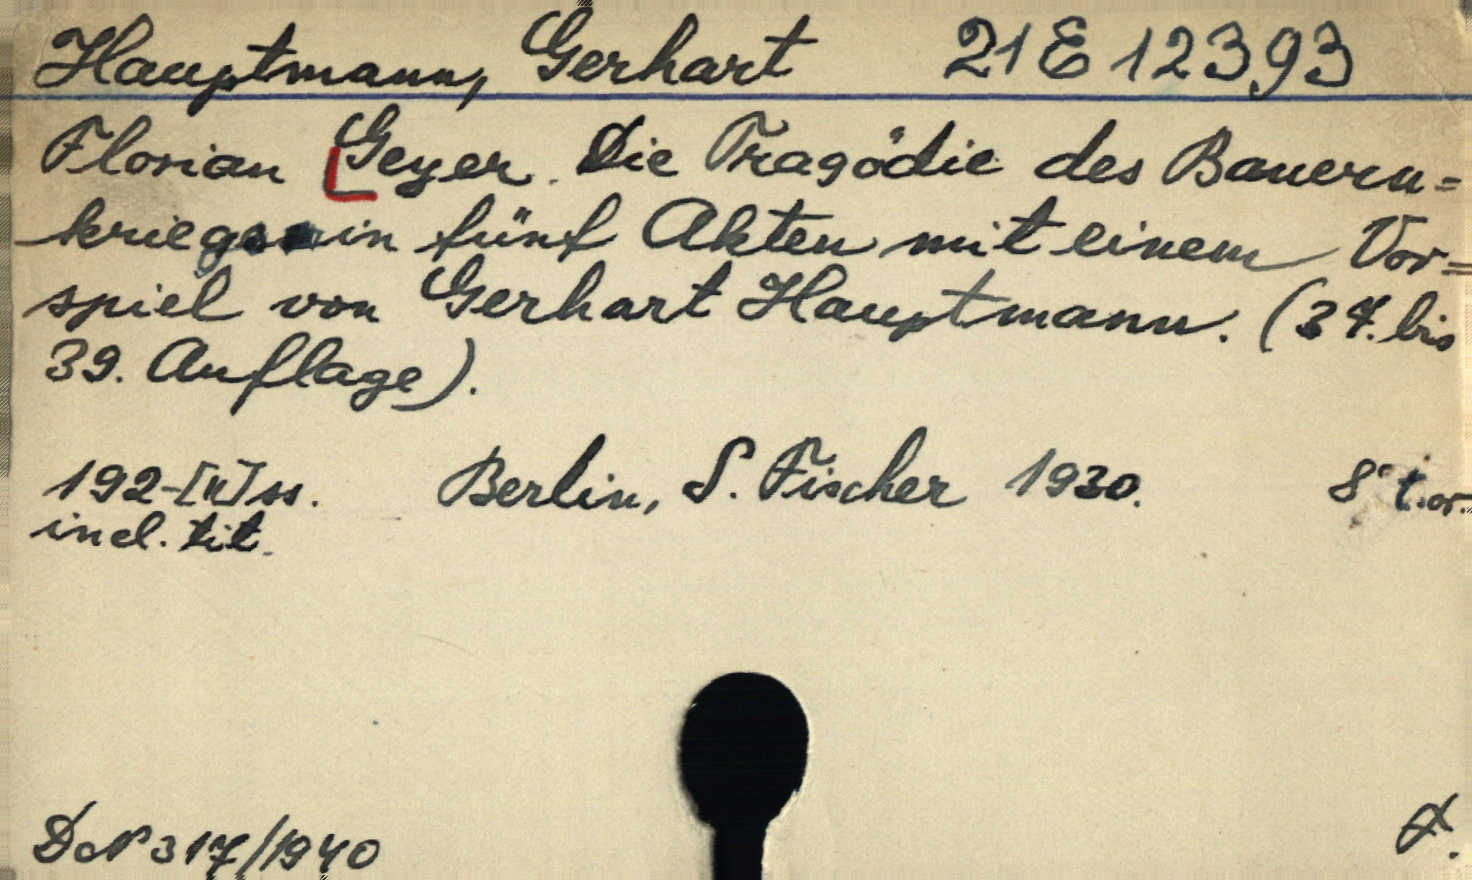 Hauptmann, Gerhart 21 E 12393
Florian Geyer. Die Tragödie des Bauern=
krieges in fünf Akten mit einem Vor=
spiel von Gerhart Hauptmann. (37. bis
39. Auflage).
192-[II] ss. Berlin, S. Fischer 1930. 8° t.or.
incl. tit.
317/1940